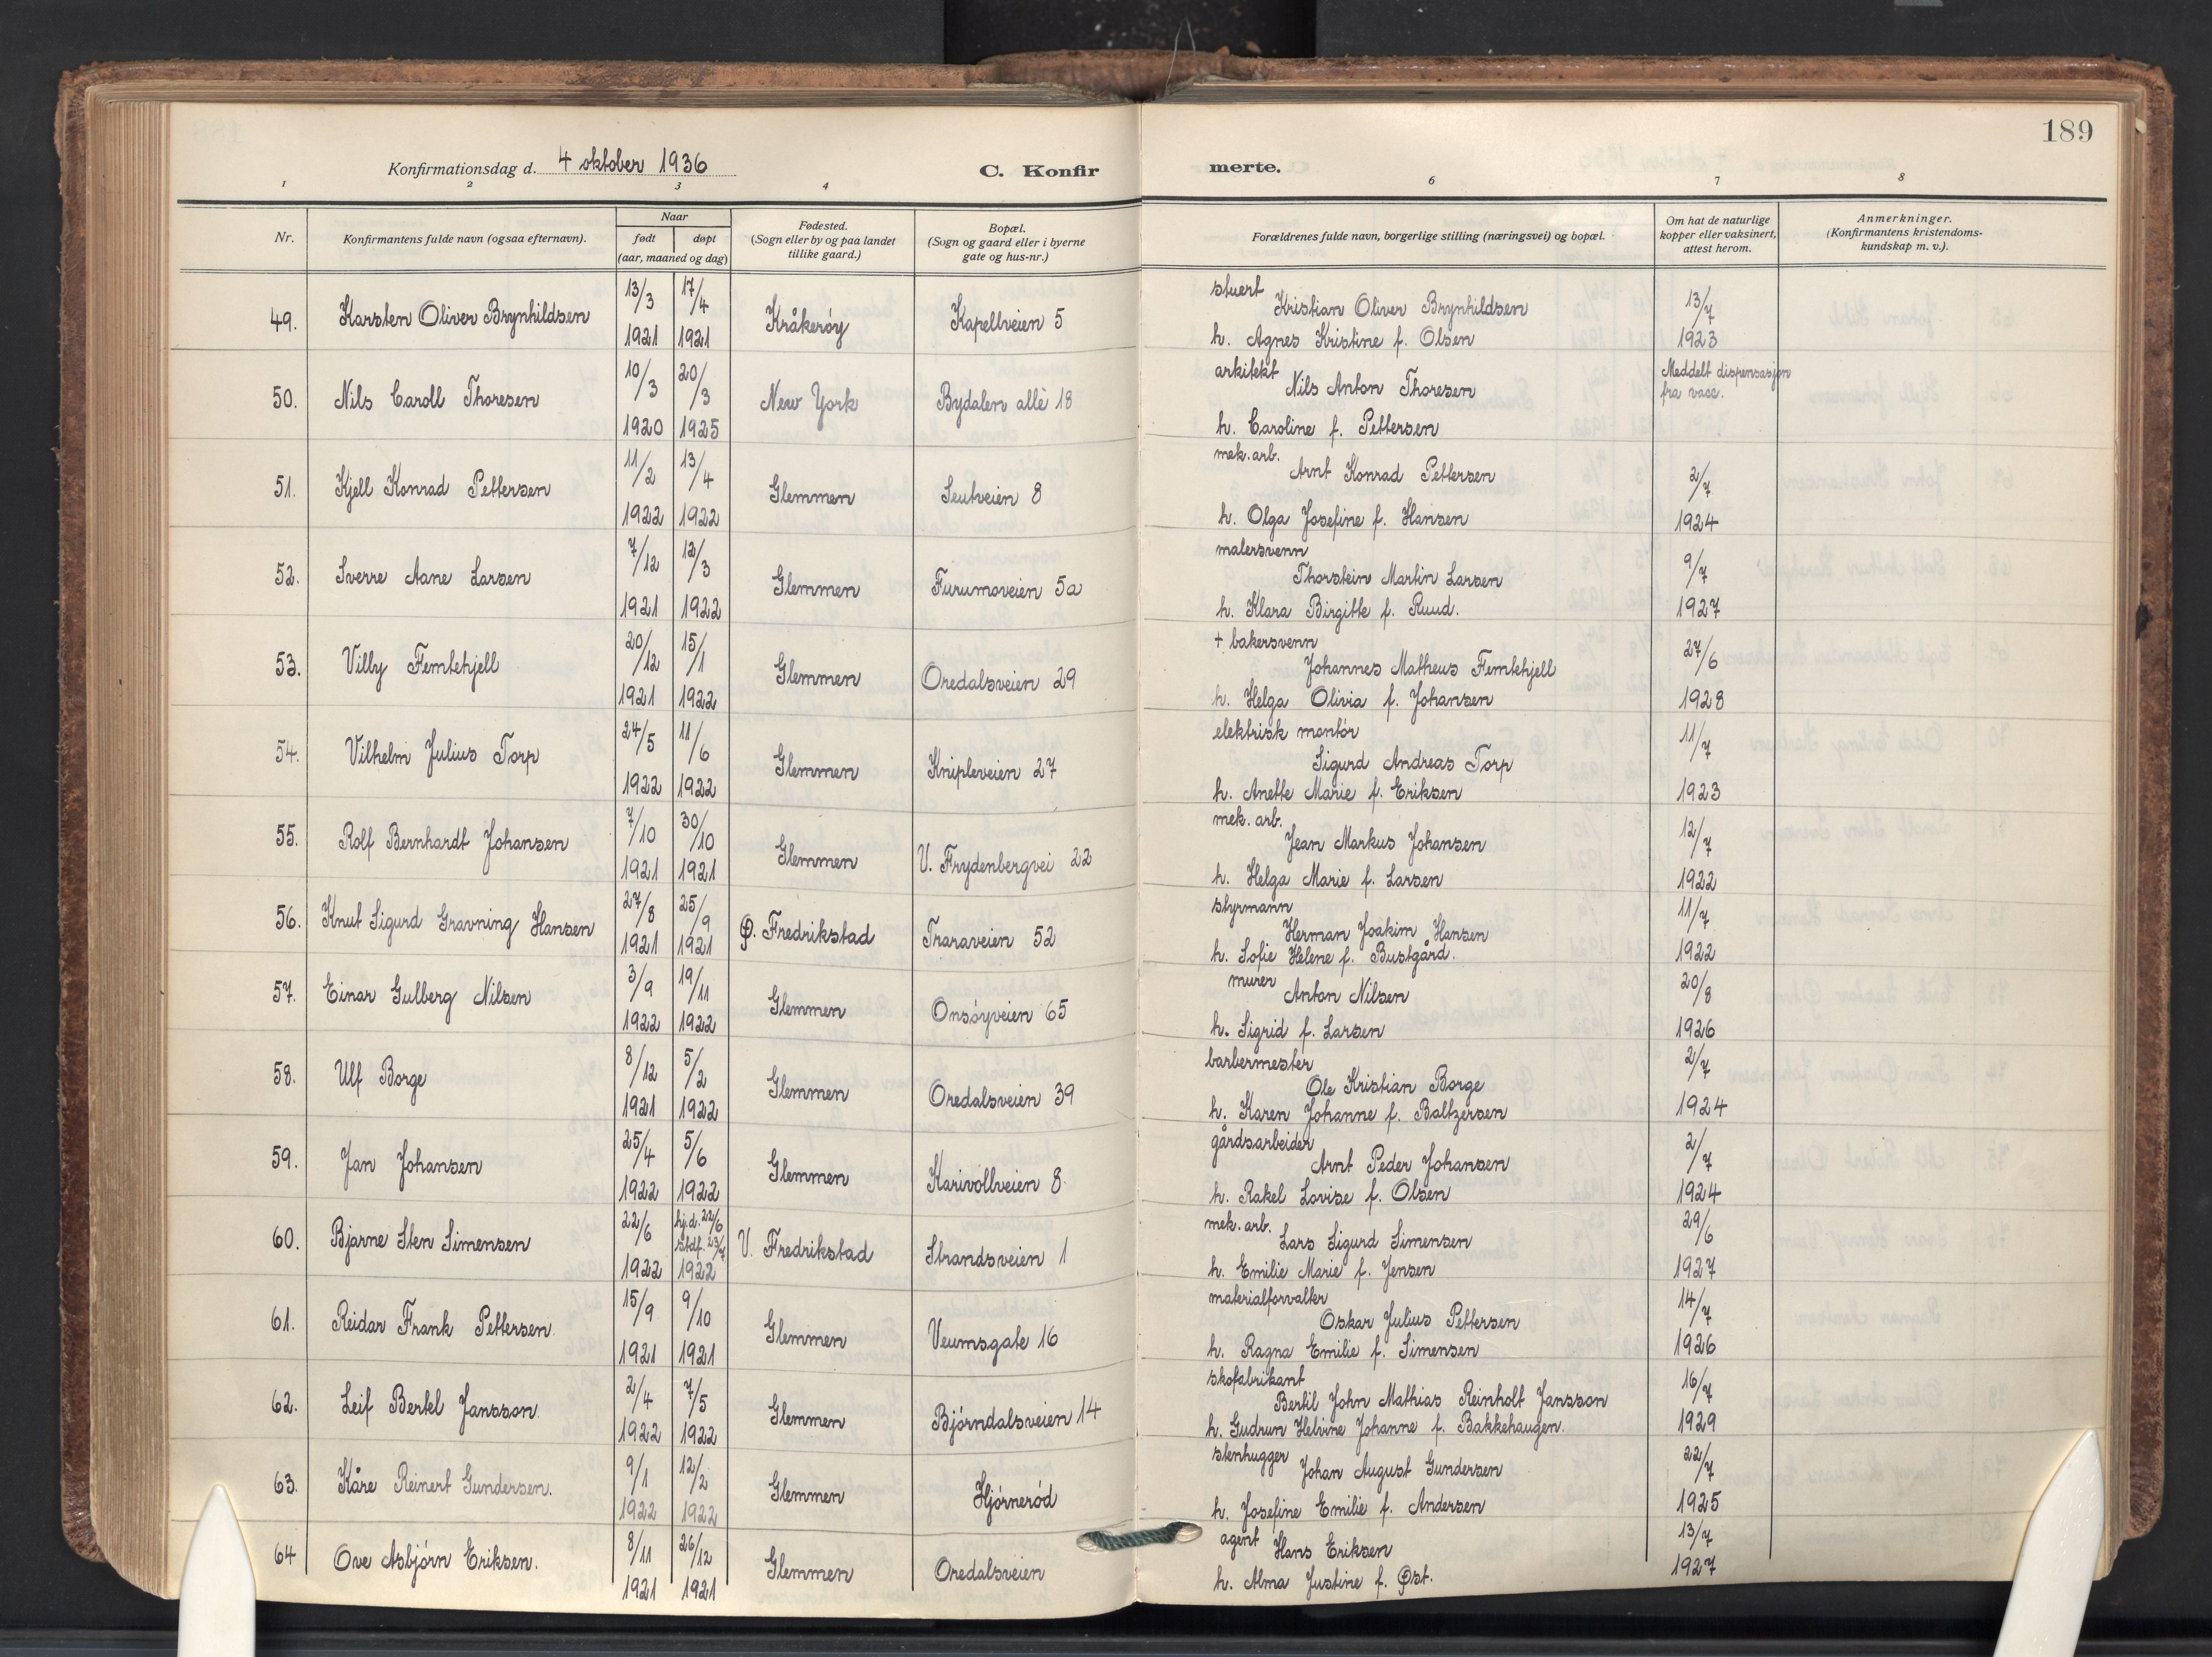 189
Konfirmationsdag d. 4 oktober 1936
C. Konfirmerte.
1 2 3 4 6 7 8
Nr.
Konfirmantens fulde navn (ogsaa efternavn).
Naar
født døpt
(aar, maaned og dag)
Fødested.
(Sogn eller by og paa landet
tillike gaard.)
Bopæl.
(Sogn og gaard eller i byerne
gate og hus-nr.)
Forældrenes fulde navn, borgerlige stilling (næringsvei) og bopæl.
Om hat de naturlige
kopper eller vaksinert,
attest herom.
Anmerkninger.
(Konfirmantens kristendoms-
kundskap m. v.).
49. Karsten Oliver Brynhildsen 13/3 1921 17/4 1921 Kråkerøy Kapellveien 5
stuert
Kristian Oliver Brynhildsen 13/7
h. Agnes Kristine f. Olsen 1923
50. Nils Caroll Thoresen 10/3 1920 20/3 1925 New York Bydalen allè 18
arkitekt Meddelt dispensasjon
Nils Anton Thoresen fra vacc.
h. Caroline f. Pettersen
51. Kjell Konrad Pettersen 11/2 1922 13/4 1922 Glemmen Seutveien 8
mek. arb.
Arnt Konrad Pettersen 2/7
h. Olga Josefine f. Hansen 1924
52. Sverre Aane Larsen 7/12 1921 12/3 1922 Glemmen Furumoveien 5a
malersvenn
Thorstein Martin Larsen 9/7
h. Klara Birgitte f. Ruud. 1927
53. Villy Femtehjell 20/12 1921 15/1 1922 Glemmen Oredalsveien 29
+ bakersvenn
Johannes Matheus Femtehjell 27/6
h. Helga Olivia f. Johansen 1928
54. Vilhelm Julius Torp 24/5 1922 11/6 1922 Glemmen Knipleveien 27
elektrisk montør
Sigurd Andreas Torp 11/7
h. Anette Marie f. Eriksen 1923
55. Rolf Bernhardt Johansen 7/10 1921 30/10 1921 Glemmen V. Frydenbergvei 22
mek. arb.
Jean Markus Johansen 12/7
h. Helga Marie f. Larsen 1922
56. Knut Sigurd Gravning Hansen 27/8 1921 25/9 1921 Ø. Fredrikstad Traraveien 52
styrmann
Herman Joakim Hansen 11/7
h. Sofie Helene f. Bustgård. 1922
57. Einar Gulberg Nilsen 3/9 1922 19/11 1922 Glemmen Onsøyveien 65
murer
Anton Nilsen 20/8
h. Sigrid f. Larsen 1926
58. Ulf Borge 8/12 1921 5/2 1922 Glemmen Oredalsveien 39
barbermester
Ole Kristian Borge 2/7
h. Karen Johanne f. Baltzersen 1924
59. Jan Johansen 25/4 1922 5/6 1922 Glemmen Karivollveien 8.
gårdsarbeider
Arnt Peder Johansen 2/7
h. Rakel Lovise f. Olsen 1924
60. Bjarne Sten Simensen 22/6 1922 hj.d. 22/6 stdf. 23/7 1922 V. Fredrikstad Strandsveien 1
mek. arb.
Lars Sigurd Simensen 29/6
h. Emilie Marie f. Jensen 1927
61. Reidar Frank Pettersen 15/9 1921 9/10 1921 Glemmen Veumsgate 16
materialforvalter
Oskar Julius Pettersen 14/7
h. Ragna Emilie f. Simensen 1926
62. Leif Bertel Jansson 2/4 1922 7/5 1922 Glemmen Bjørndalsveien 14
skofabrikant
Bertil John Mathias Reinholt Jansson 16/7
h. Gudrun Helvine Johanne f. Bakkehaugen. 1929
63. Kåre Reinert Gundersen. 9/1 1922 12/2 1922 Glemmen Hjørnerød
stenhugger
Johan August Gundersen 22/7
h. Josefine Emilie f. Andersen 1925
64 Ove Asbjørn Eriksen. 8/11 1921 26/12 1921 Glemmen Oredalsveien
agent
Hans Eriksen 13/7
h. Alma Justine f. Øst. 1927